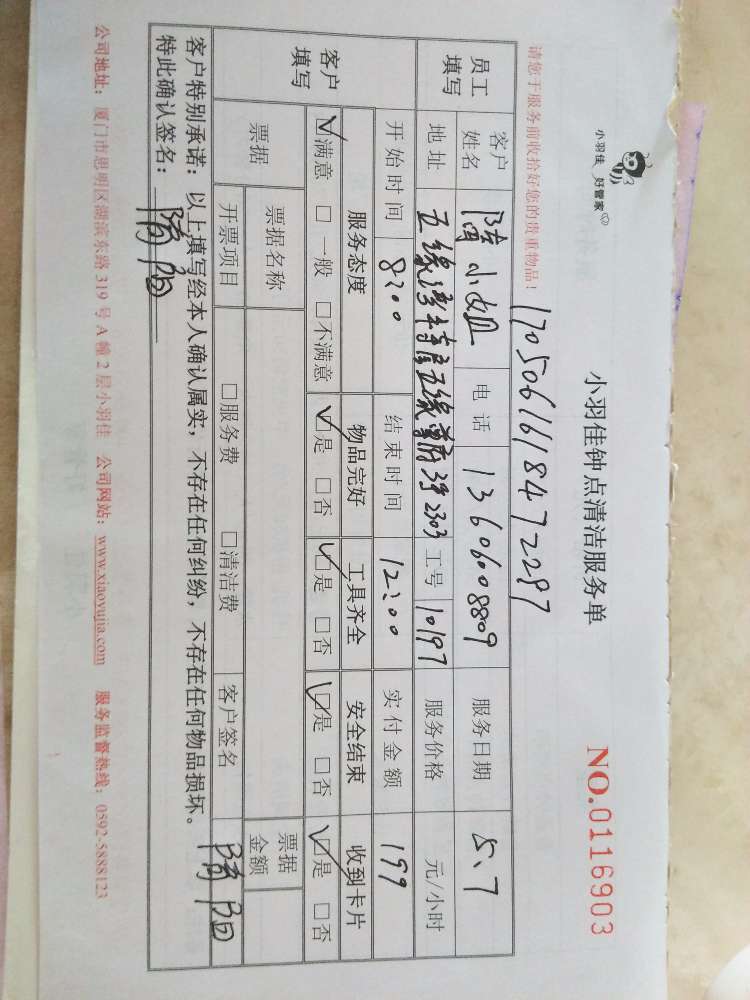 小羽佳 好管家®
小羽佳钟点清洁服务单
NO.0116903
请您于服务前收拾好您的贵重物品！
1705061618472297
员工填写 客户姓名 小姐 电话 13606008809 服务日期 5.7
地址 五缘湾 五缘尊府 2303 工号 10197 服务价格 元/小时
开始时间 8:00 结束时间 12:00 实付金额 199
客户填写 服务态度 物品完好 工具齐全 安全结束 收到卡片
☑满意 □一般 □不满意 ☑是 □否 ☑是 □否 ☑是 □否 ☑是 □否
票据 票据名称 票据金额
开票项目 □服务费 □清洁费 客户签名
客户特别承诺：以上填写经本人确认属实，不存在任何纠纷，不存在任何物品损坏。
特此确认签名：
公司地址：厦门市思明区湖滨东路 319 号 A 幢 2 层小羽佳 公司网站：www.xiaoyujia.com 服务监督热线：0592-5888123